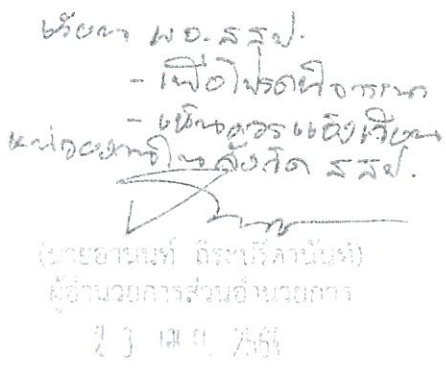 เรียน ผอ. สสป.
- เพื่อโปรดพิจารณา
- เห็นควรแจ้งเวียน
หน่วยงานในสังกัด สสป.
(นายอานนท์
ผู้อำนวยการส่วนอำนวยการ
23 เม.ย. 2564